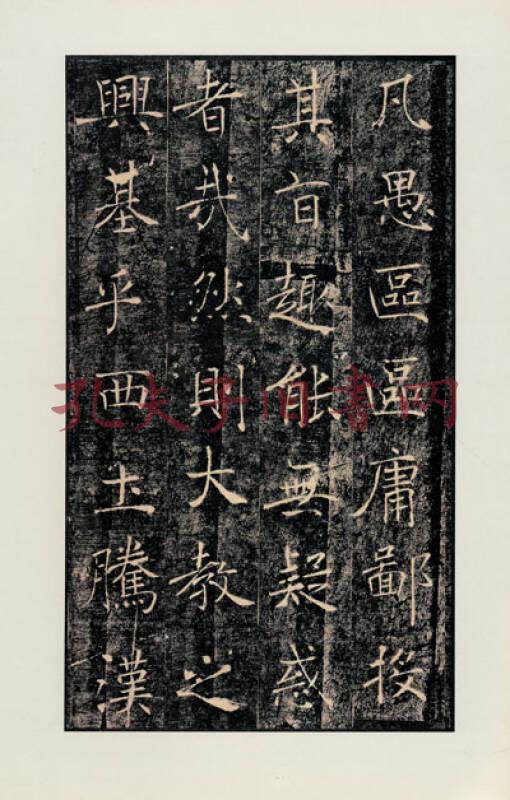 凡愚區區庸鄙投
其旨趣能無疑惑
者哉然則大教之
興基乎西土騰漢
孔夫子旧书网